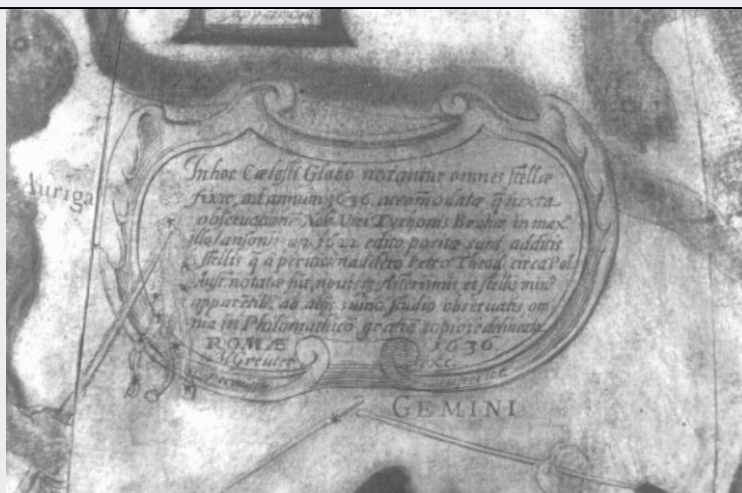 Auriga
In hoc Cælesti Globo notantur omnes stellæ
fixæ ad annum 1636 accom̄odatæ q̄ iuxta
observationē Nob. Viri Tychonis Brahæ in max.º
illo Iansonij an 1622 edito positæ sunt, additis
stellis q̄ a peritiss. nauclero Petro Theod. circa Pol.
Aust. notatæ sūt, novisq̄ Asterismis et stellis min.º
apparētib. ab alijs summo studio observatis om
nia in Philomathico gratiā copiose delineata
ROMÆ 1636
M Greuter exc.
GEMINI